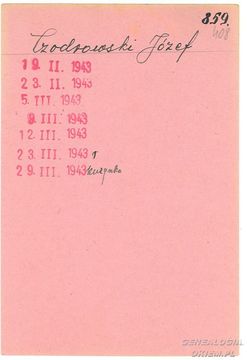 859
408
Czodrowski Józef
19. II. 1943
23. II. 1943
5. III. 1943
9. III. 1943
12. III. 1943
23. III. 1943
29. III. 1943
GENEALOGIA
OKIEM.PL